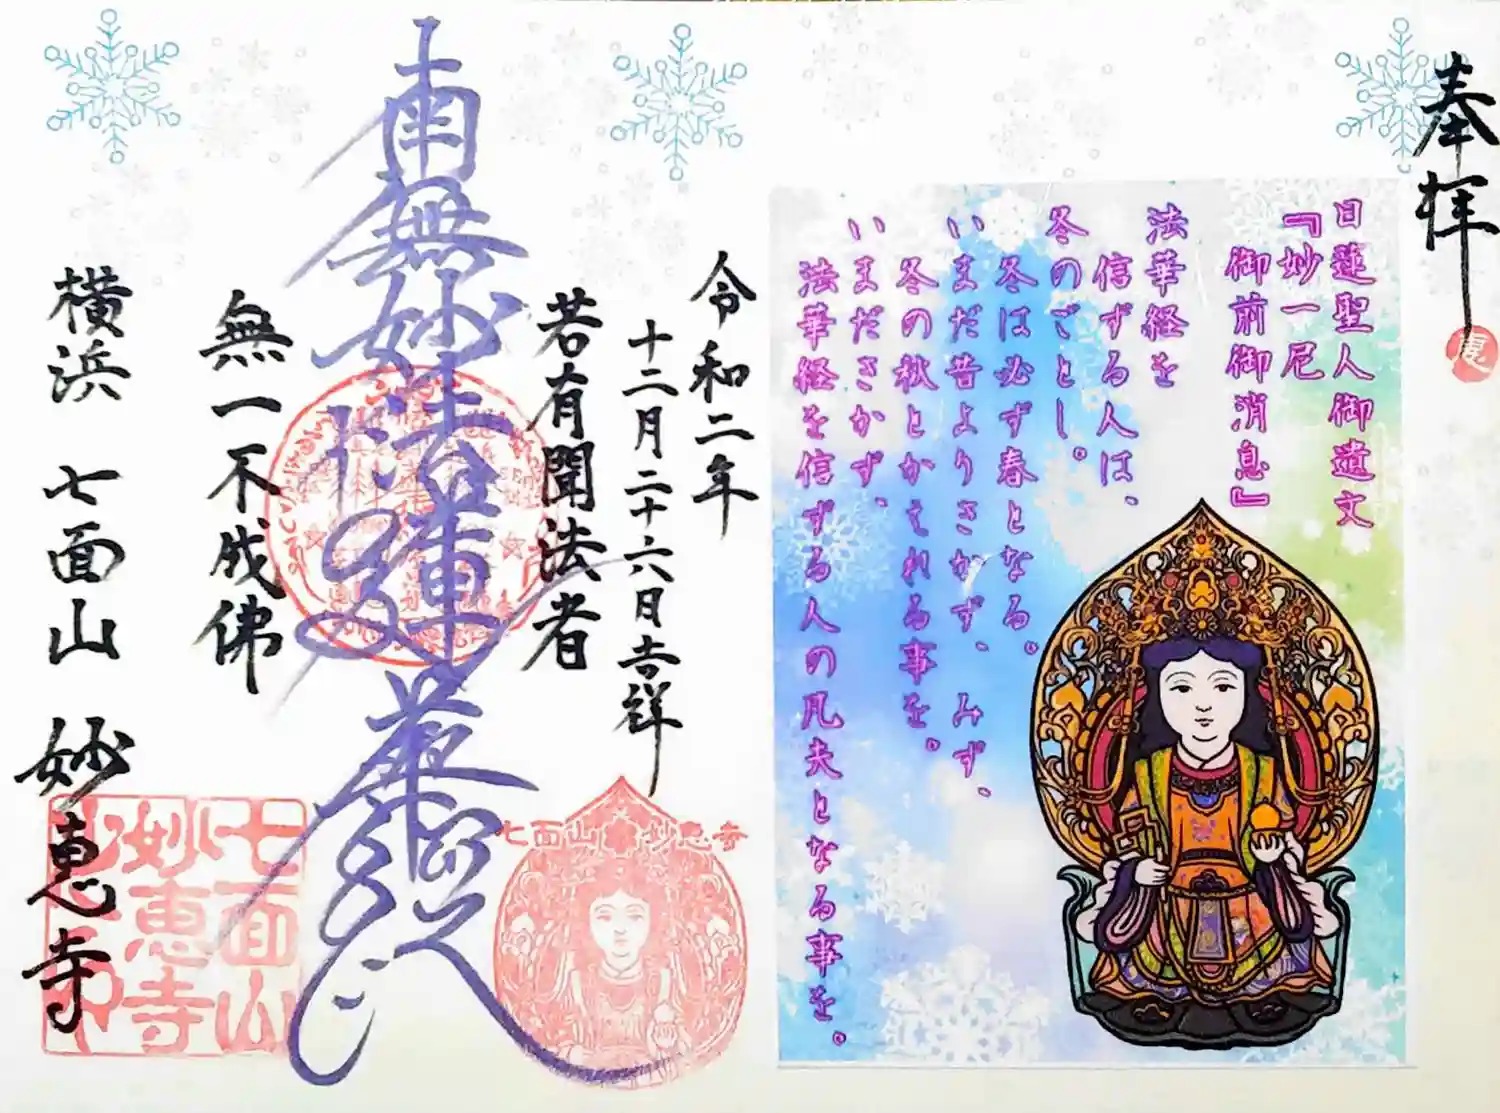 奉拝
日蓮聖人御遺文
『妙一尼
御前御消息』
法華経を
信ずる人は、
冬のごとし。
冬は必ず春となる。
いまだ昔よりきかず、みず、
冬の秋とかえれる事を。
いまだきかず、
法華経を信ずる人の凡夫となる事を。
令和二年
十二月二十六日吉祥
若有聞法者
南無妙法蓮華経
無一不成佛
横浜 七面山 妙恵寺
七面山 妙恵寺
七面山
妙恵寺